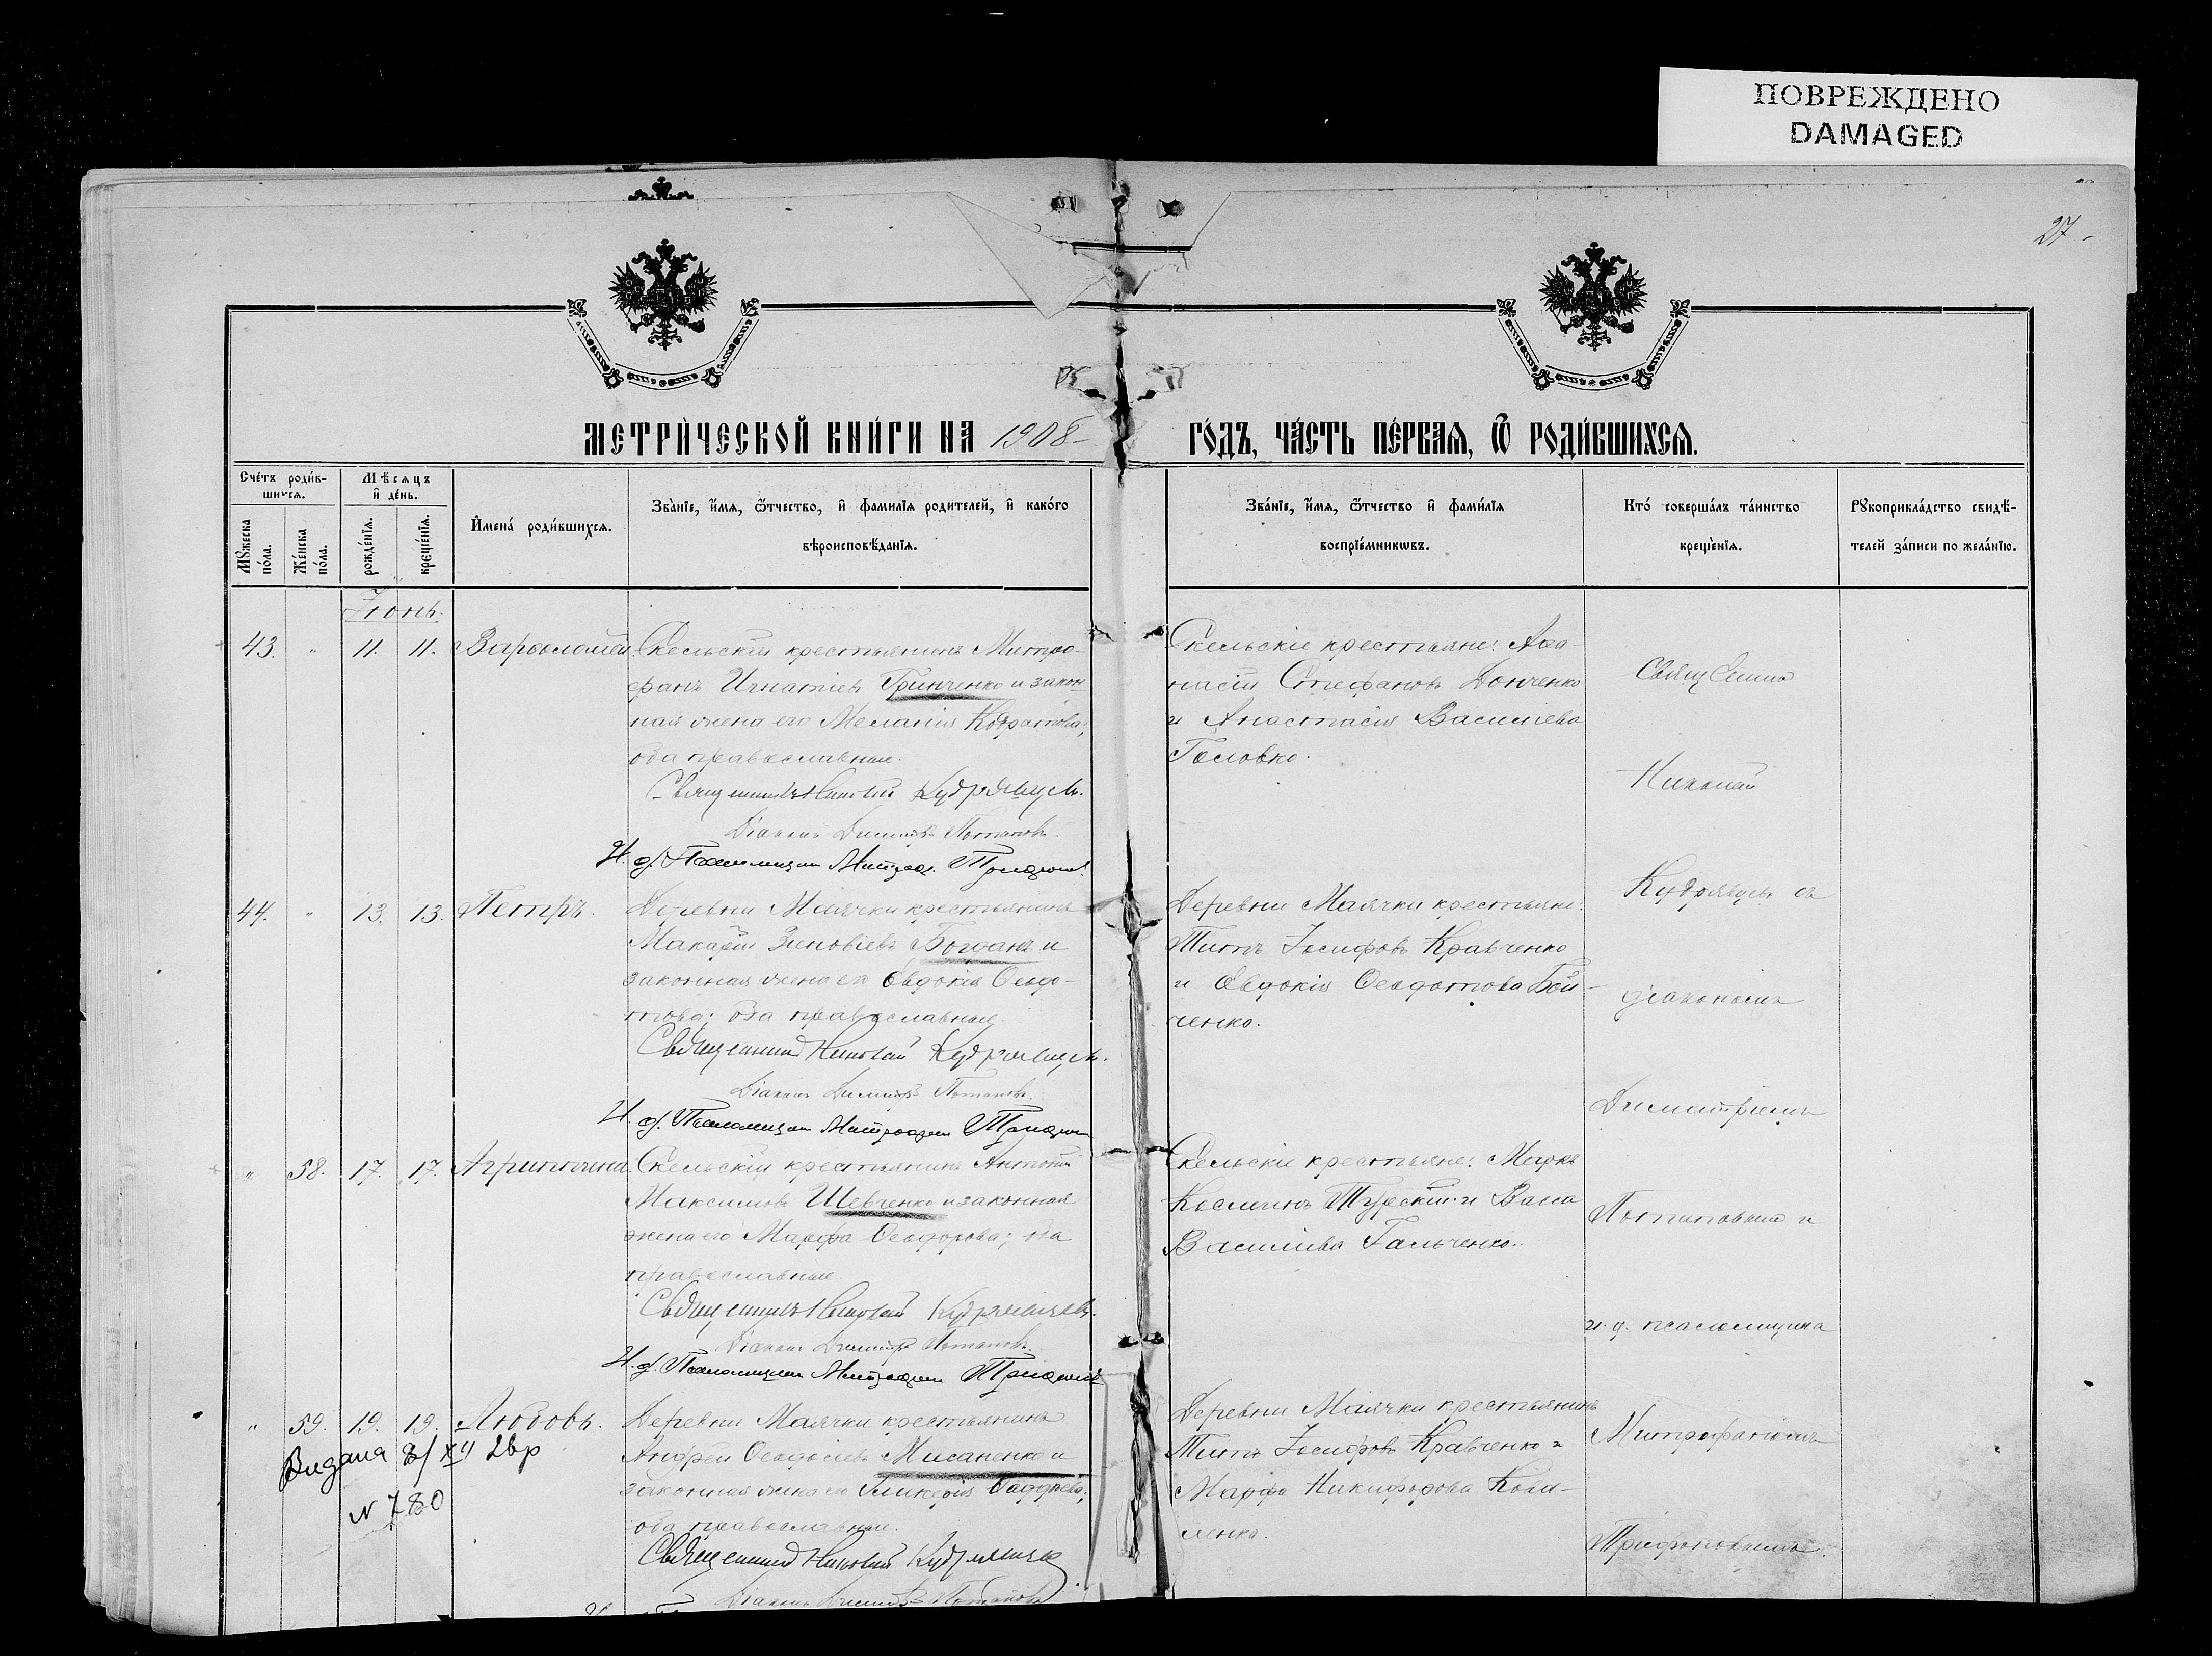 ПОВРЕЖДЕНО
DAMAGED
27
МЕТРИ́ЧЕСКОЙ КНИ́ГИ НА 1908 ГО́ДЪ, ЧА́СТЬ ПЕ́РВАѦ, Ѿ РОДИ́ВШИХСѦ.
Сче́тъ роди́вшихсѧ.
Мꙋ́жеска по́ла.
Же́нска по́ла.
Мѣ́сѧцъ и҆ де́нь.
рожде́нїѧ.
креще́нїѧ.
И҆мена̀ роди́вшихсѧ.
Зва́нїе, и҆́мѧ, ѻ҆́тчество, и҆ фами́лїѧ роди́телей, и҆ како́го
вѣроисповѣ́данїѧ.
Зва́нїе, и҆́мѧ, ѻ҆́тчество и҆ фами́лїѧ
воспрїе́мникѡвъ.
Кто̀ соверша́лъ та́инство
креще́нїѧ.
Рꙋкоприкла́дство свидѣ́-
телей за́писи по жела́нїю.
Іюнь.
43. " 11. 11. Варѳоломей
Скельскій крестьянинъ Митро-
фанъ Игнатіевъ Гринченко и закон-
ная жена его Меланія Кодратова,
оба православные.
Священникъ Николай Кудрявцевъ.
Діаконъ Димитр. Потаповъ.
И. д. Псаломщик Митроф. Трифонов
Скельскіе крестьяне: Аѳа-
насій Стефановъ Донченко
и Анастасія Василіева
Головко.
44. " 13. 13. Петръ.
Деревни Маячки крестьянинъ
Макарій Зиновіевъ Богданъ и
законная жена его Евдокія Ѳеодо-
това; оба православные.
Священникъ Николай Кудрявцевъ.
Діаконъ Димитр. Потаповъ.
И. д. Псаломщик Митрофан Трифонов
Деревни Маячки крестьяне:
Титъ Іосифовъ Кравченко
и Евдокія Ѳеодотова Бой-
ченко.
" 58. 17. 17. Агриппина.
Скельскій крестьянинъ Антоній
Максимовъ Шевченко и законная
жена его Марѳа Ѳеодорова; оба
православные
Священникъ Николай Кудрявцевъ.
Діаконъ Димитр. Потаповъ.
И. д. Псаломщик Митрофан Трифонов
Скельскіе крестьяне: Маркъ
Косминъ Турскій и Васса
Василіева Гальченко.
" 59. 19. 19. Любовь.
Видана 8/XII 2вр
N 780
Деревни Маячки крестьянинъ
Андрей Ѳеодосіевъ Мисаненко и
законная жена его Гликерія Ѳаддеева,
оба православные.
Священникъ Николай Кудрявцевъ
Діаконъ Димитр. Потаповъ
Деревни Маячки крестьянинъ
Титъ Іосифовъ Кравченко и
Марѳа Никифорова Коли-
ленко.
Священник
Николай
Кудрявцевъ съ
діакономъ
Димитріемъ
Потаповымъ и
и. д. псаломщика
Митрофаномъ
Трифоновымъ.